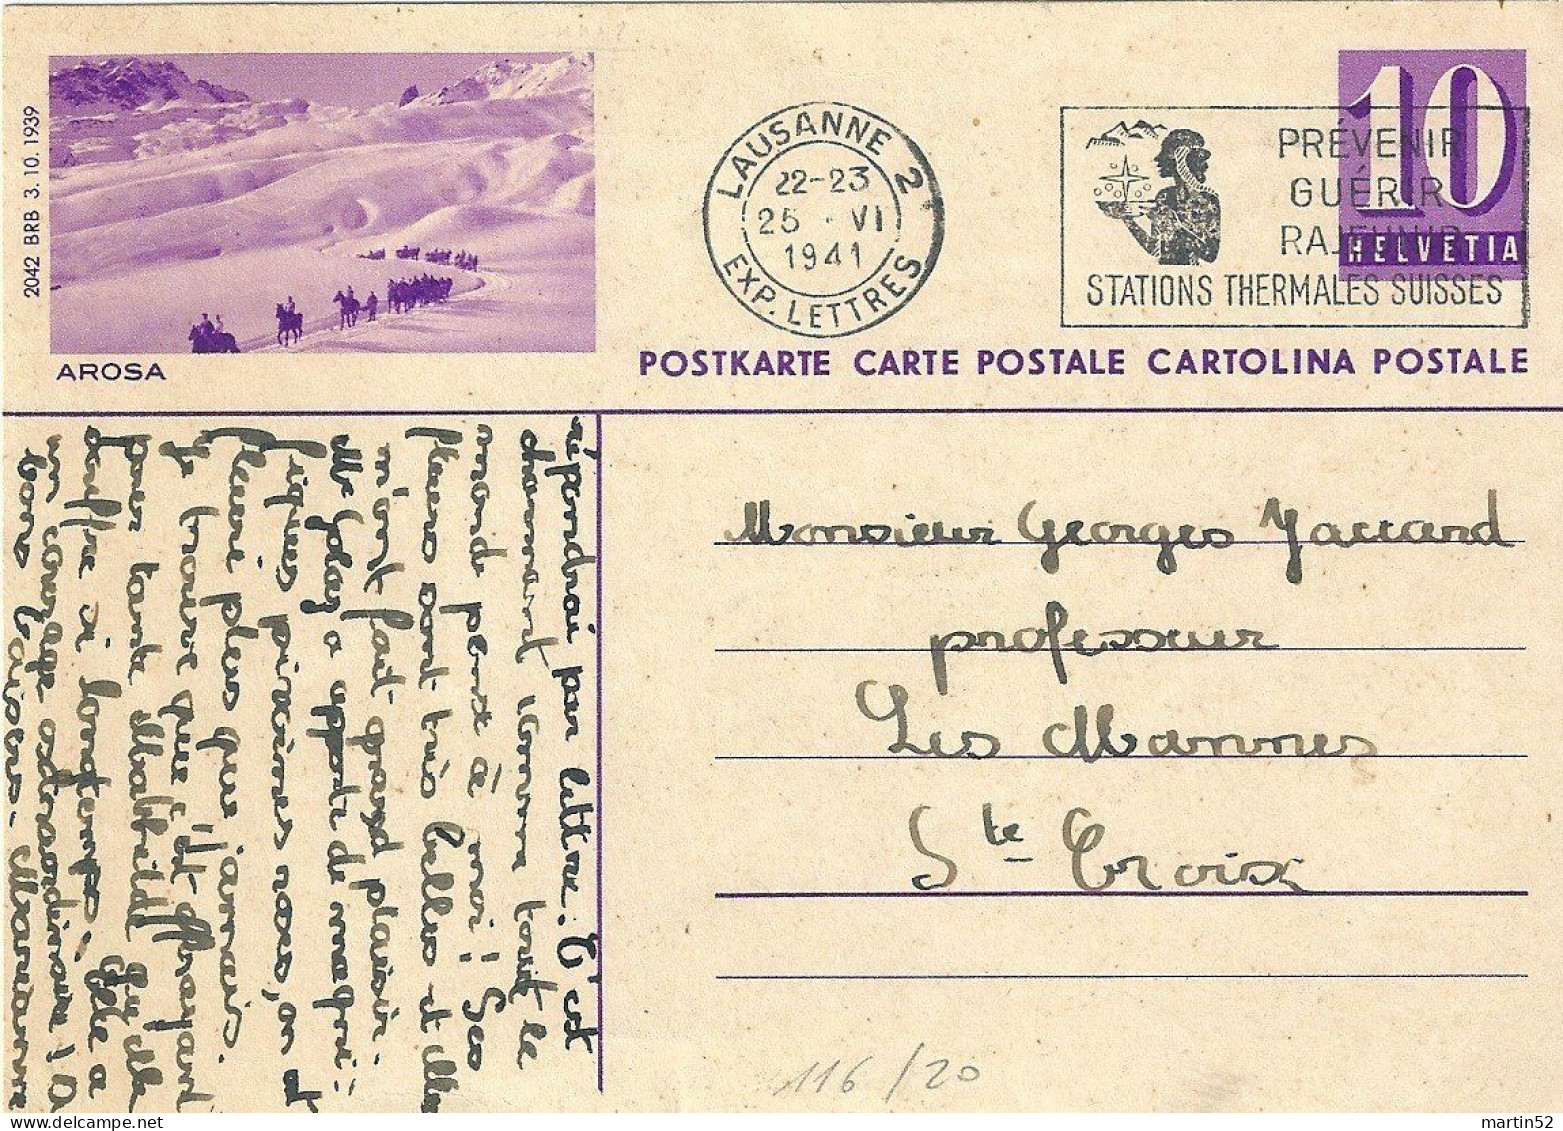 2042 BRB 3. 10. 1939
AROSA
LAUSANNE 2
22-23
25 · VI
1941
EXP. LETTRES
PRÉVENIR
GUÉRIR
RAJEUNIR
STATIONS THERMALES SUISSES
10
HELVETIA
POSTKARTE CARTE POSTALE CARTOLINA POSTALE
Monsieur Georges Jaccard
professeur
Les Mannes
Ste Croix
répondrai par lettre. C'est
charmant comme tout le
monde pense à moi! Ses
fleurs sont très belles et elles
m'ont fait grand plaisir.
Me Golay a apporté de magni-
fiques pivoines roses, on est
fleuri plus que jamais.
Je trouve que c'est effrayant
pour tante Mathilde qu'elle
souffre si longtemps. Elle a
un courage extraordinaire! A
bons baisers. Marianne
116/20
martin52